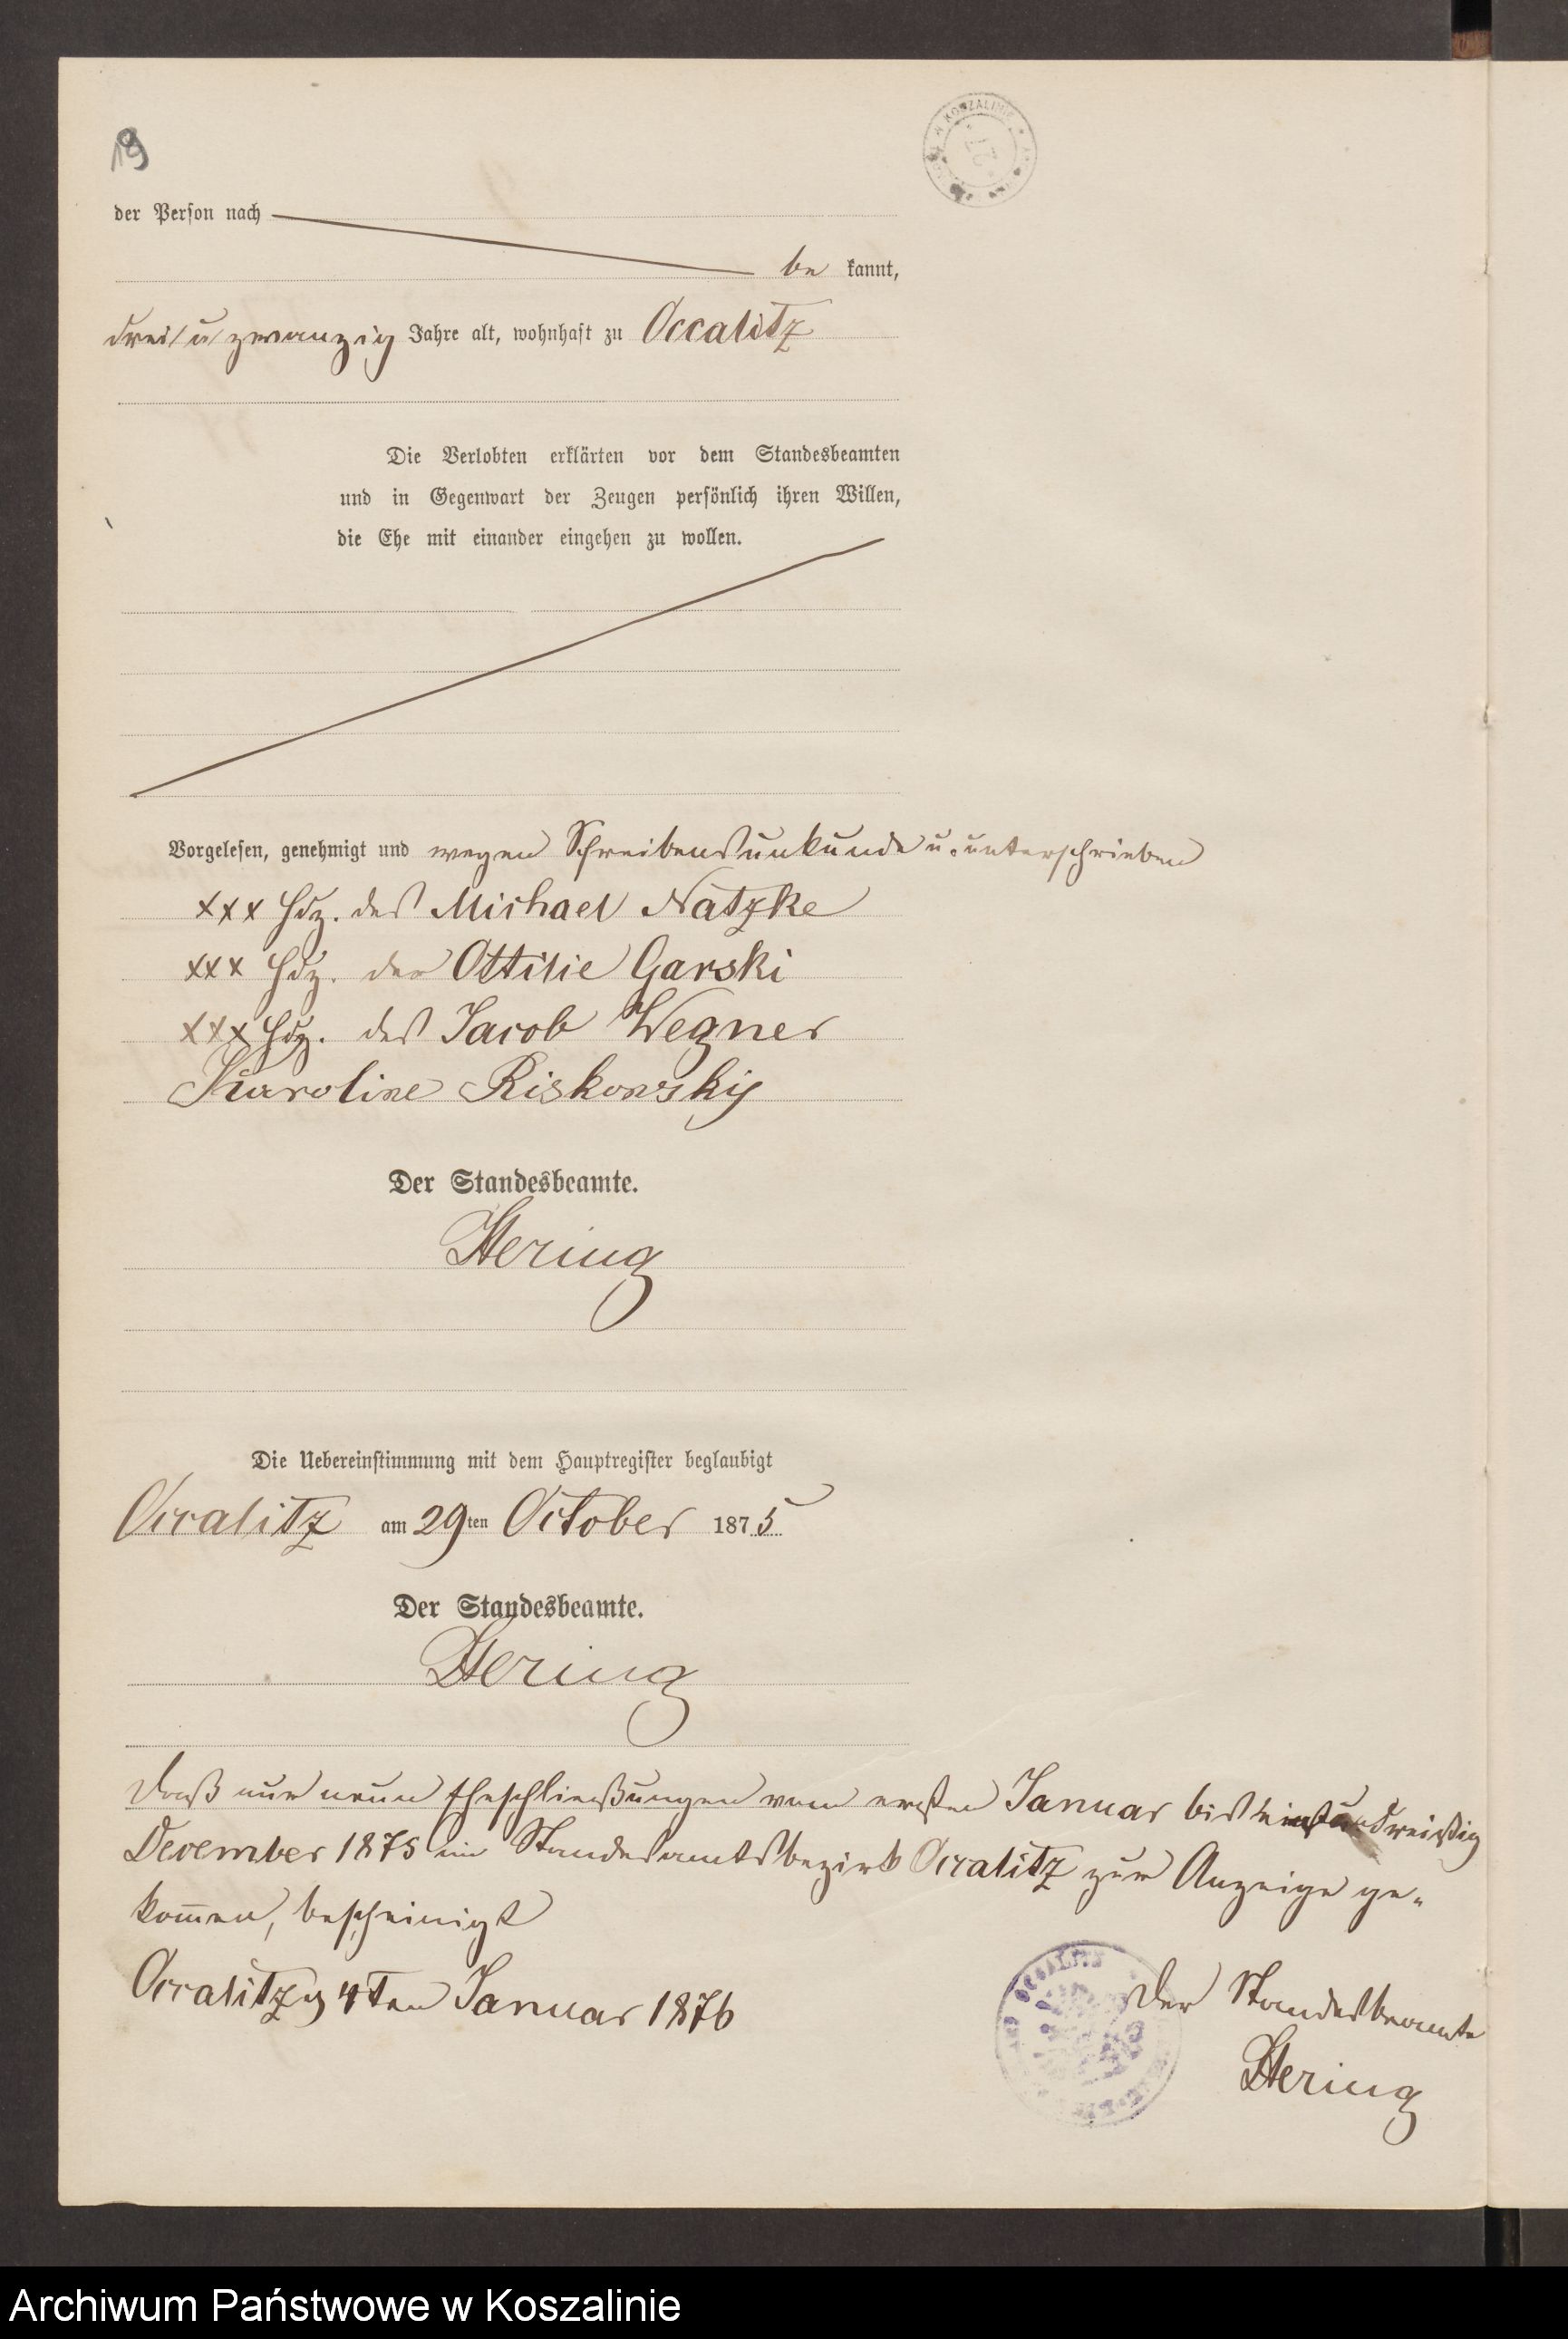 19
W KOSZALINIE
der Person nach
be kannt,
drei/u/zwanzig Jahre alt, wohnhaft zu Occalitz
Die Verlobten erklärten vor dem Standesbeamten
und in Gegenwart der Zeugen persönlich ihren Willen,
die Ehe mit einander eingehen zu wollen.
Vorgelesen, genehmigt und wegen Schreibensunkunde u. unterschrieben
xxx Hdz. des Michael Natzke
xxx Hdz. der Ottilie Garski
xxx Hdz. des Jacob Wegner
Karoline Riskowsky
Der Standesbeamte.
Hering
Die Uebereinstimmung mit dem Hauptregister beglaubigt
Occalitz am 29ten October 1875
Der Standesbeamte.
Hering
Daß nur neun Eheschließungen vom ersten Januar bis einunddreißig
December 1875 im Standesamtsbezirk Occalitz zur Anzeige ge-
kom̄en, bescheinigt
Occalitz 4ten Januar 1876
Der Standesbeamte
Hering
OCCALITZ
Archiwum Państwowe w Koszalinie